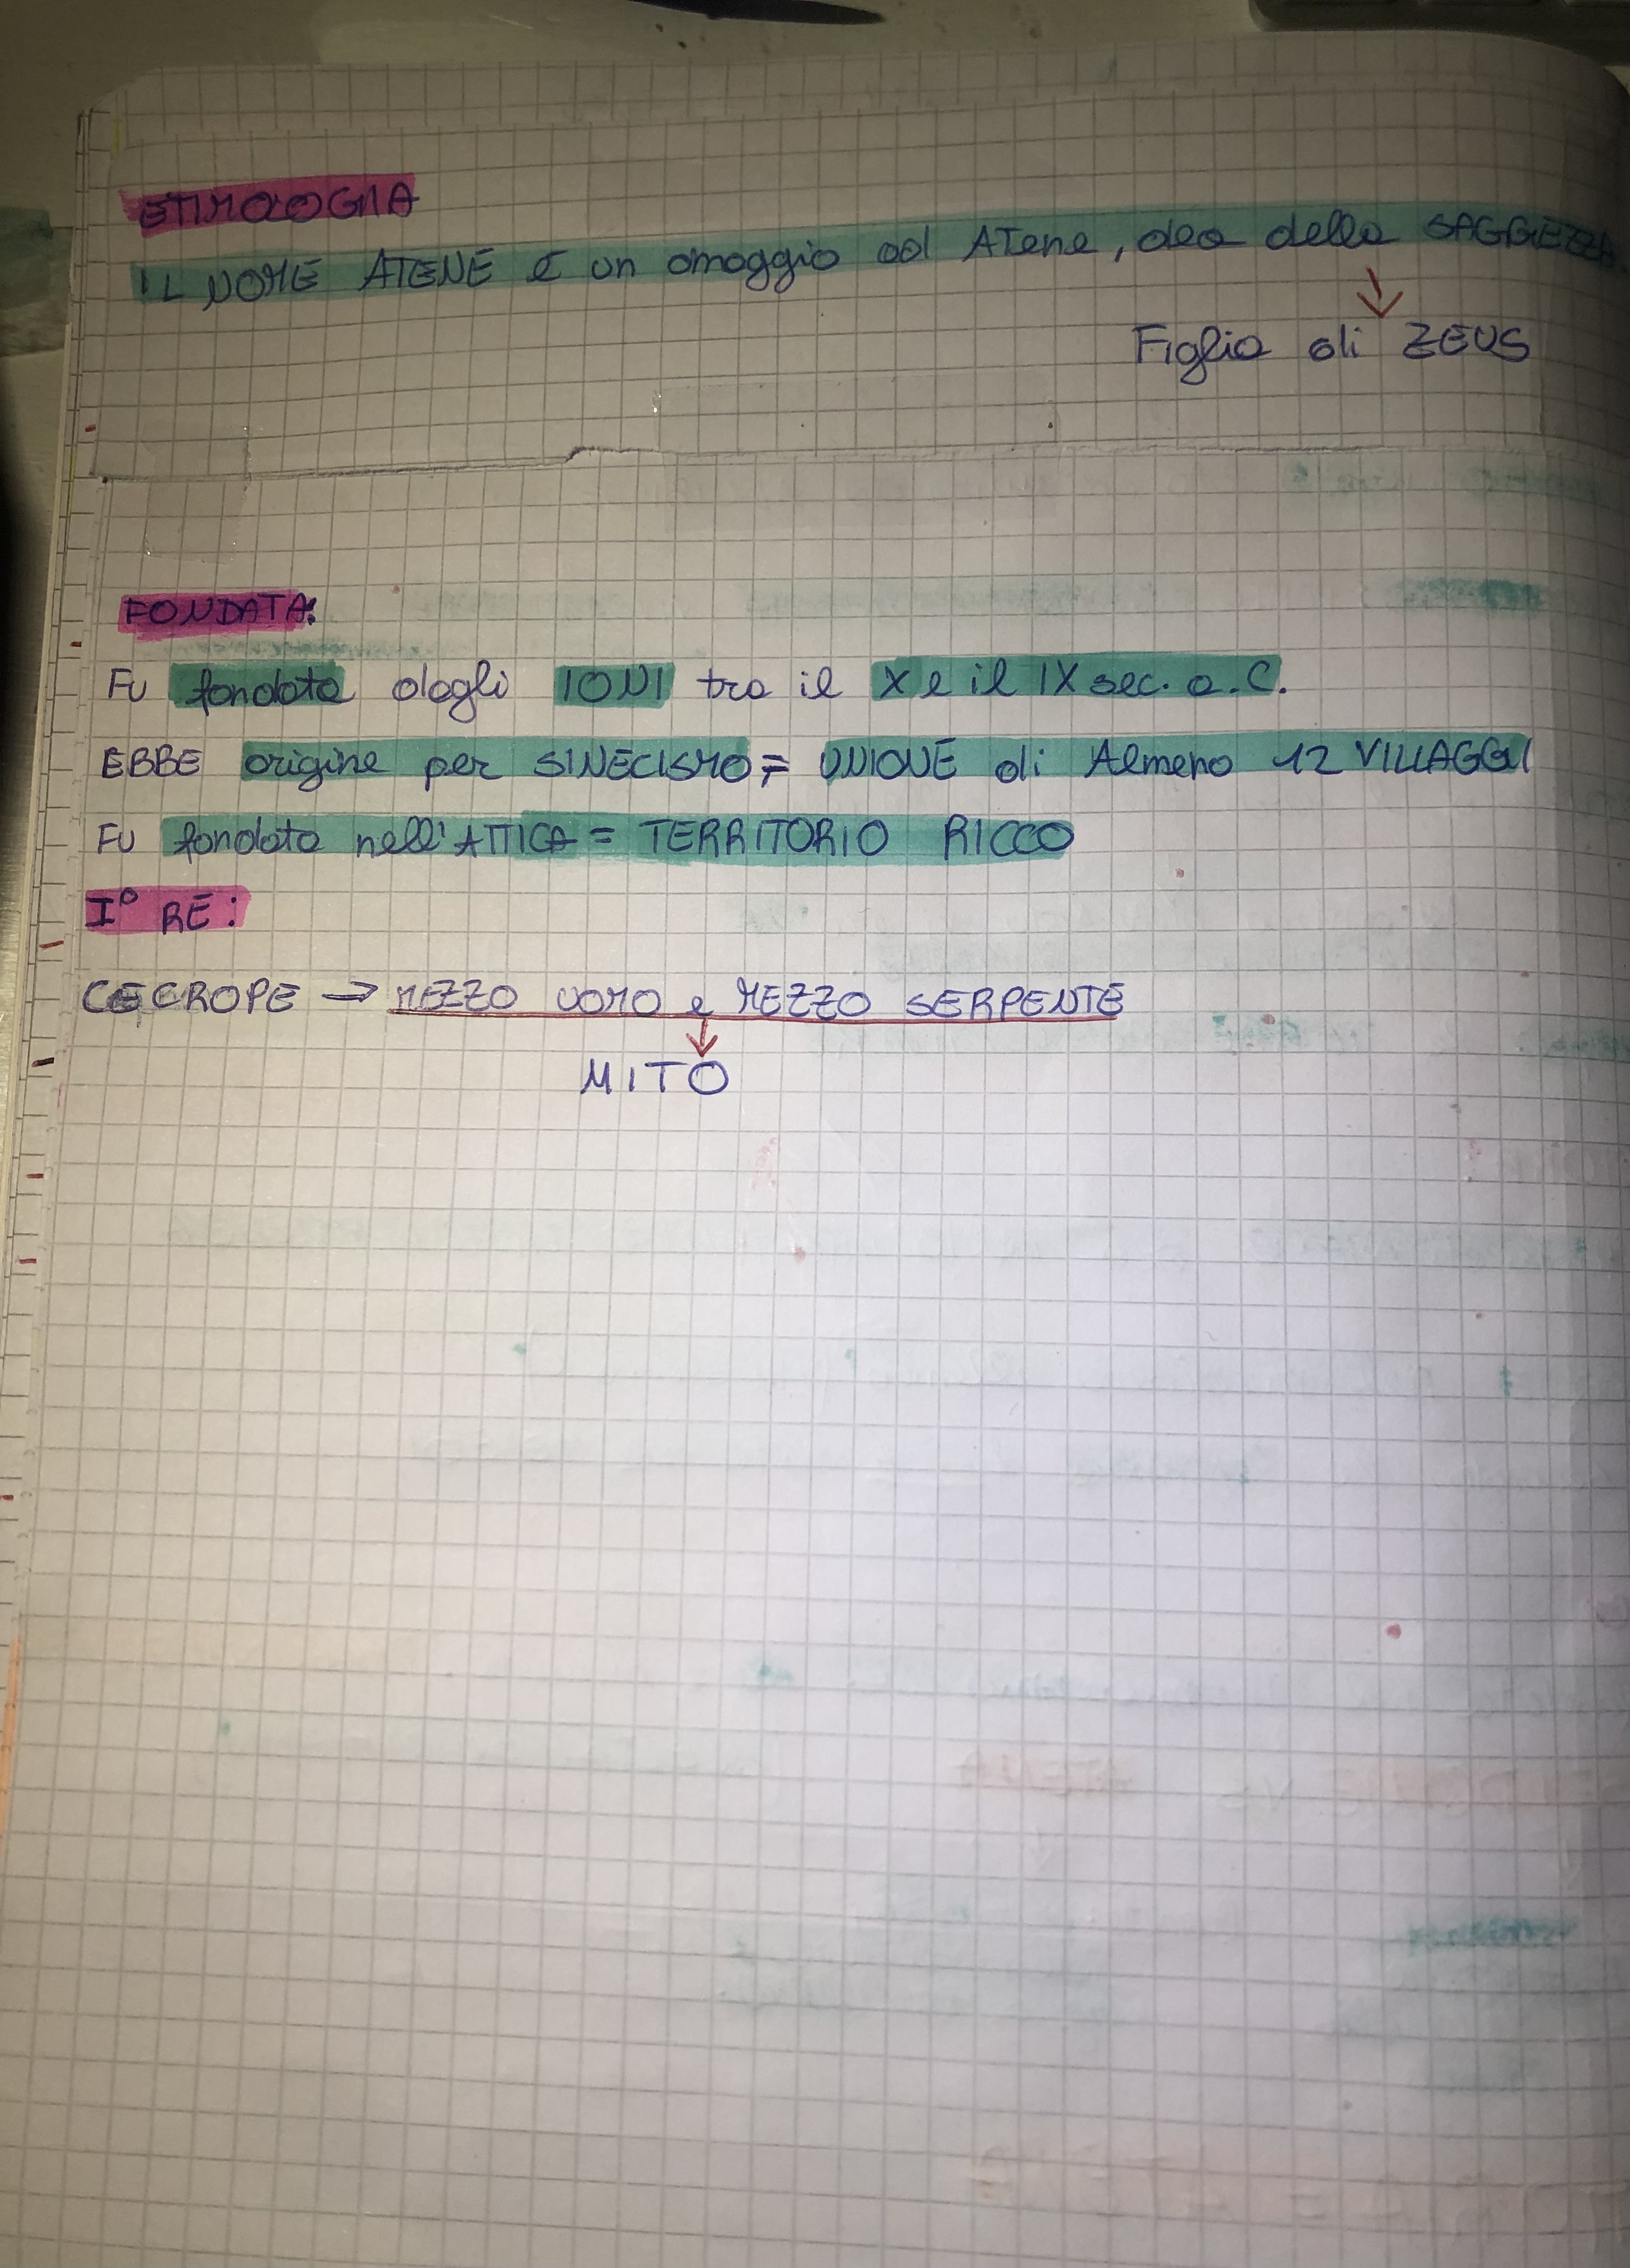 ETIMOLOGIA
IL NOME ATENE È un omaggio ad ATene, dea della SAGGEZZA
Figlia di ZEUS
FONDATA:
FU fondata dagli IONI tra il X e il IX sec. a.C.
EBBE origine per SINECISMO = UNIONE di Almeno 12 VILLAGGI
FU fondata nell'ATTICA = TERRITORIO RICCO
I° RE:
CECROPE → MEZZO UOMO e MEZZO SERPENTE
MITO